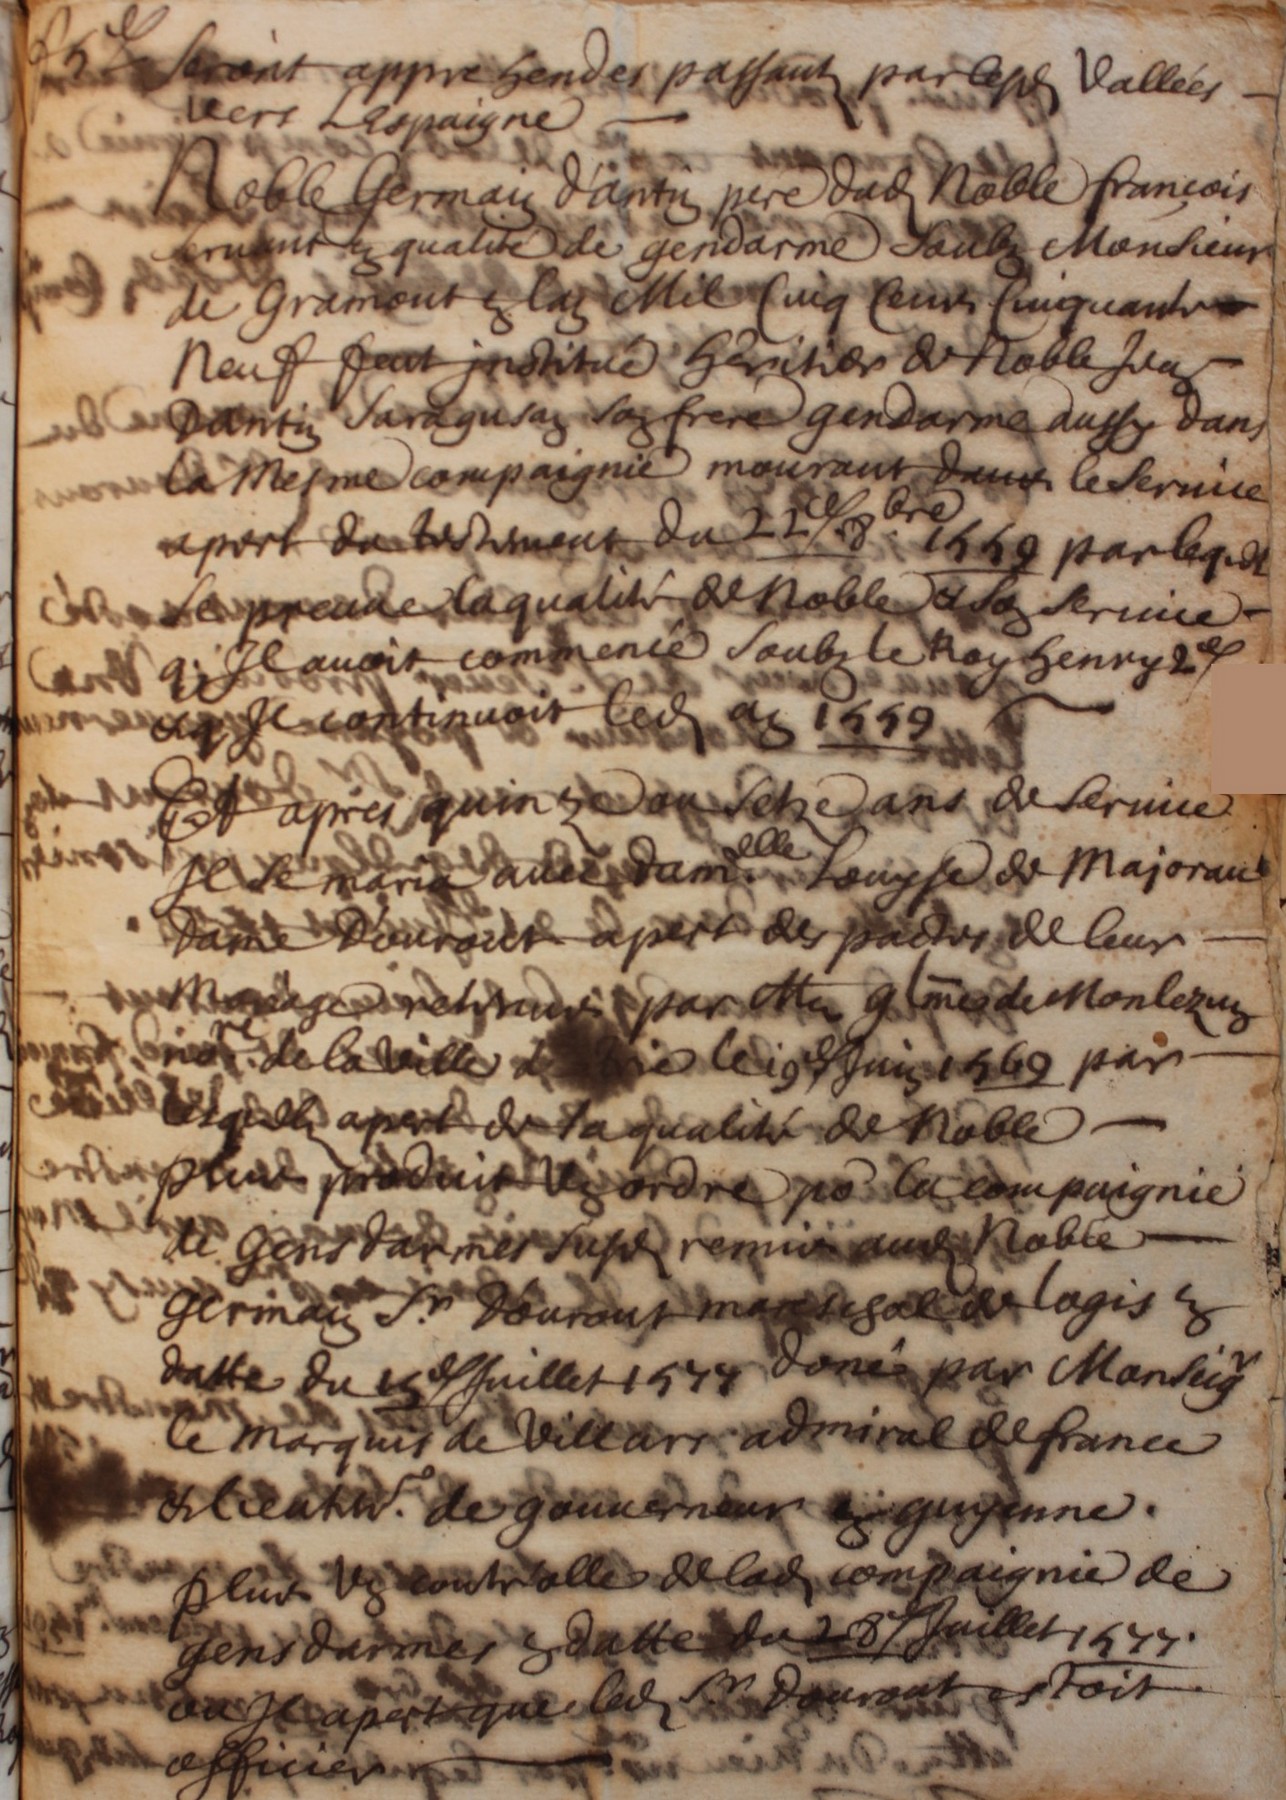 seront apprehendes passantz par lesd Vallées
vers Lespaigne
Noble Germain d'antin pere dud Noble francois
servant en qualité de gendarme soubz Monsieur
de Gramont en lan Mil Cinq Cens Cinquante
Neuf feut institué heritier de Noble Jean
Dantin Saragusan son frere gendarme aussy dans
la Mesme compaignie mourant dans le Service
apert du testement du 22e 8.bre 1559 par leq.el
se preuve la qualité de Noble & son Service
q'Il avoit commencé soubz le Roy Henry 2e
& q'Il continuoit led an 1559
Et apres quinze ou setze ans de service
Il se maria avec dam.elle Louyse de Majoran
dame d'ourout apert des pactes de leur
Mariage retenus par Me glmes de Monlezun
no.re de la ville de Trie le 19e Juin 1569 par
lesquelz apert de sa qualité de Noble
plus produit Un ordre po' la compaignie
de Gensdarmes susd remis aud Noble
Germain Sr. Dourout mareschal de logis en
datte du 15e Juillet 1577 doné par Monseigr
le Marquis de Villars admiral de france
& lieuten.t de gouverneur en guyenne.
plus Un controlle de lad compaignie de
gensdarmes en datte du 28e Juillet 1577.
ou Il apert que led Sr. Dourout estoit
officier